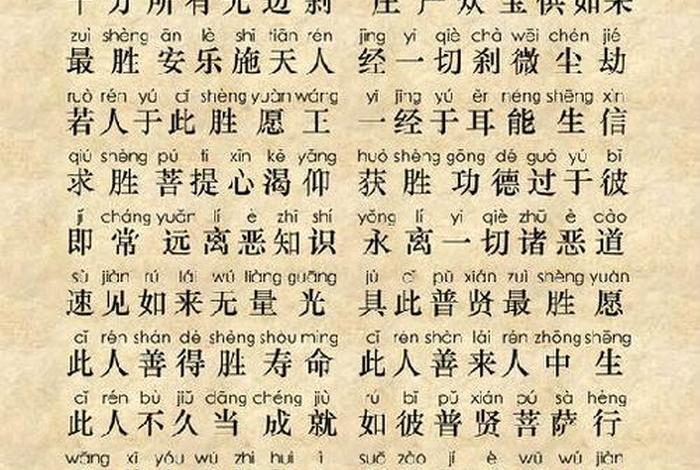 十方所有无边刹 庄严众宝供如来
zuì shèng ān lè shī tiān rén jīng yí qiè chà wēi chén jié
最胜安乐施天人 经一切刹微尘劫
ruò rén yú cǐ shèng yuàn wáng yì jīng yú ěr néng shēng xìn
若人于此胜愿王 一经于耳能生信
qiú shèng pú tí xīn kě yǎng huò shèng gōng dé guò yú bǐ
求胜菩提心渴仰 获胜功德过于彼
jí cháng yuǎn lí è zhī shí yǒng lí yí qiè zhū è dào
即常远离恶知识 永离一切诸恶道
sù jiàn rú lái wú liàng guāng jù cǐ pǔ xián zuì shèng yuàn
速见如来无量光 具此普贤最胜愿
cǐ rén shàn dé shèng shòu mìng cǐ rén shàn lái rén zhōng shēng
此人善得胜寿命 此人善来人中生
cǐ rén bù jiǔ dāng chéng jiù rú bǐ pǔ xián pú sà hèng
此人不久当成就 如彼普贤菩萨行
wǎng xī yóu wú zhì huì lì suǒ zào jí è wǔ wú jiàn